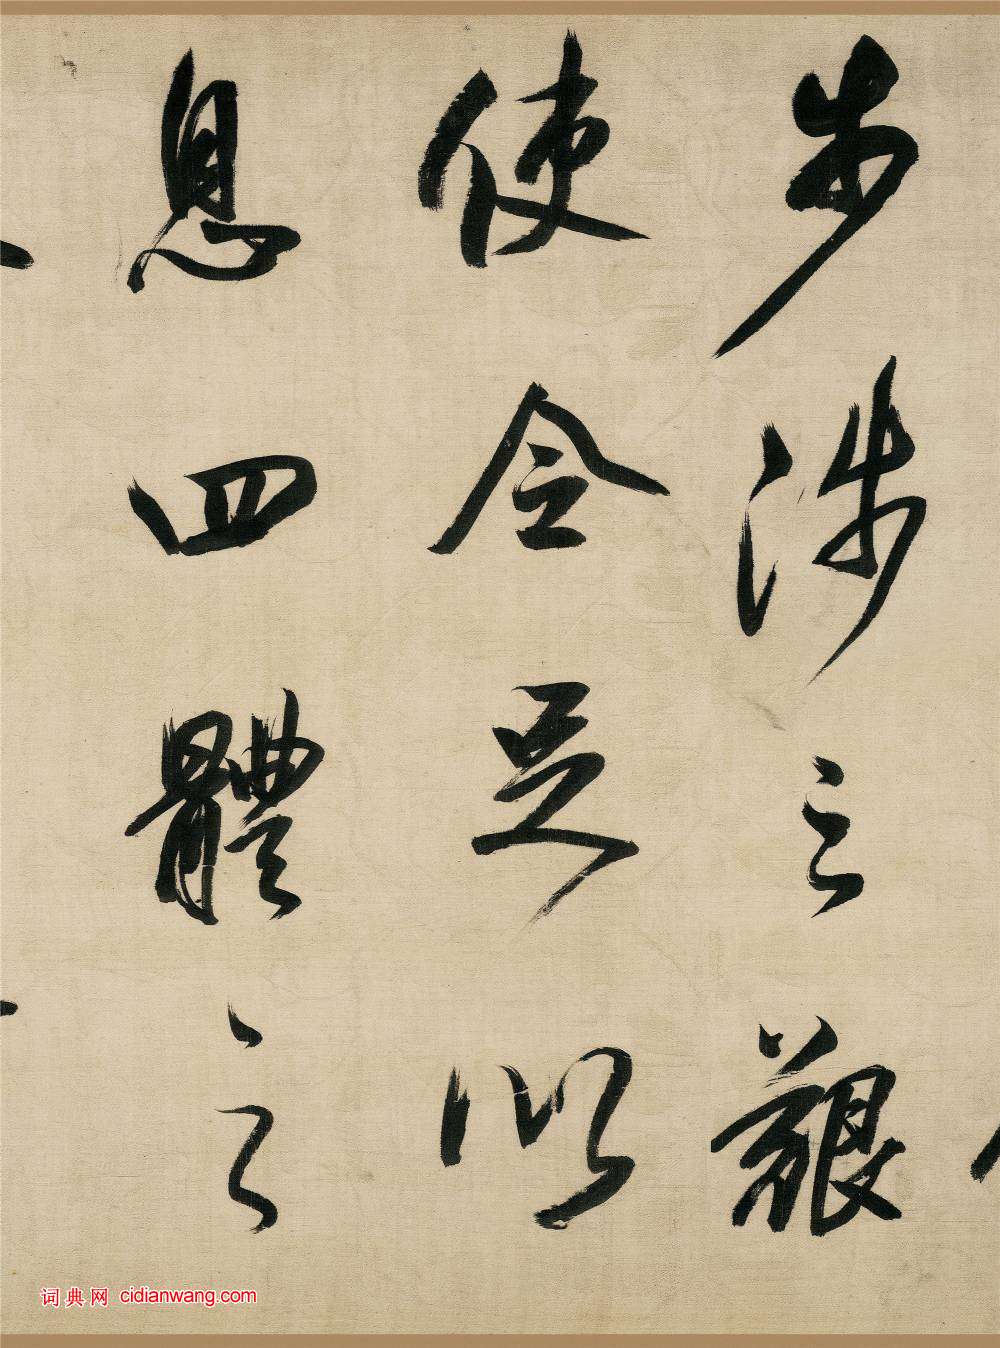 步涉之艱
使令足以
息四體之
词典网 cidianwang.com